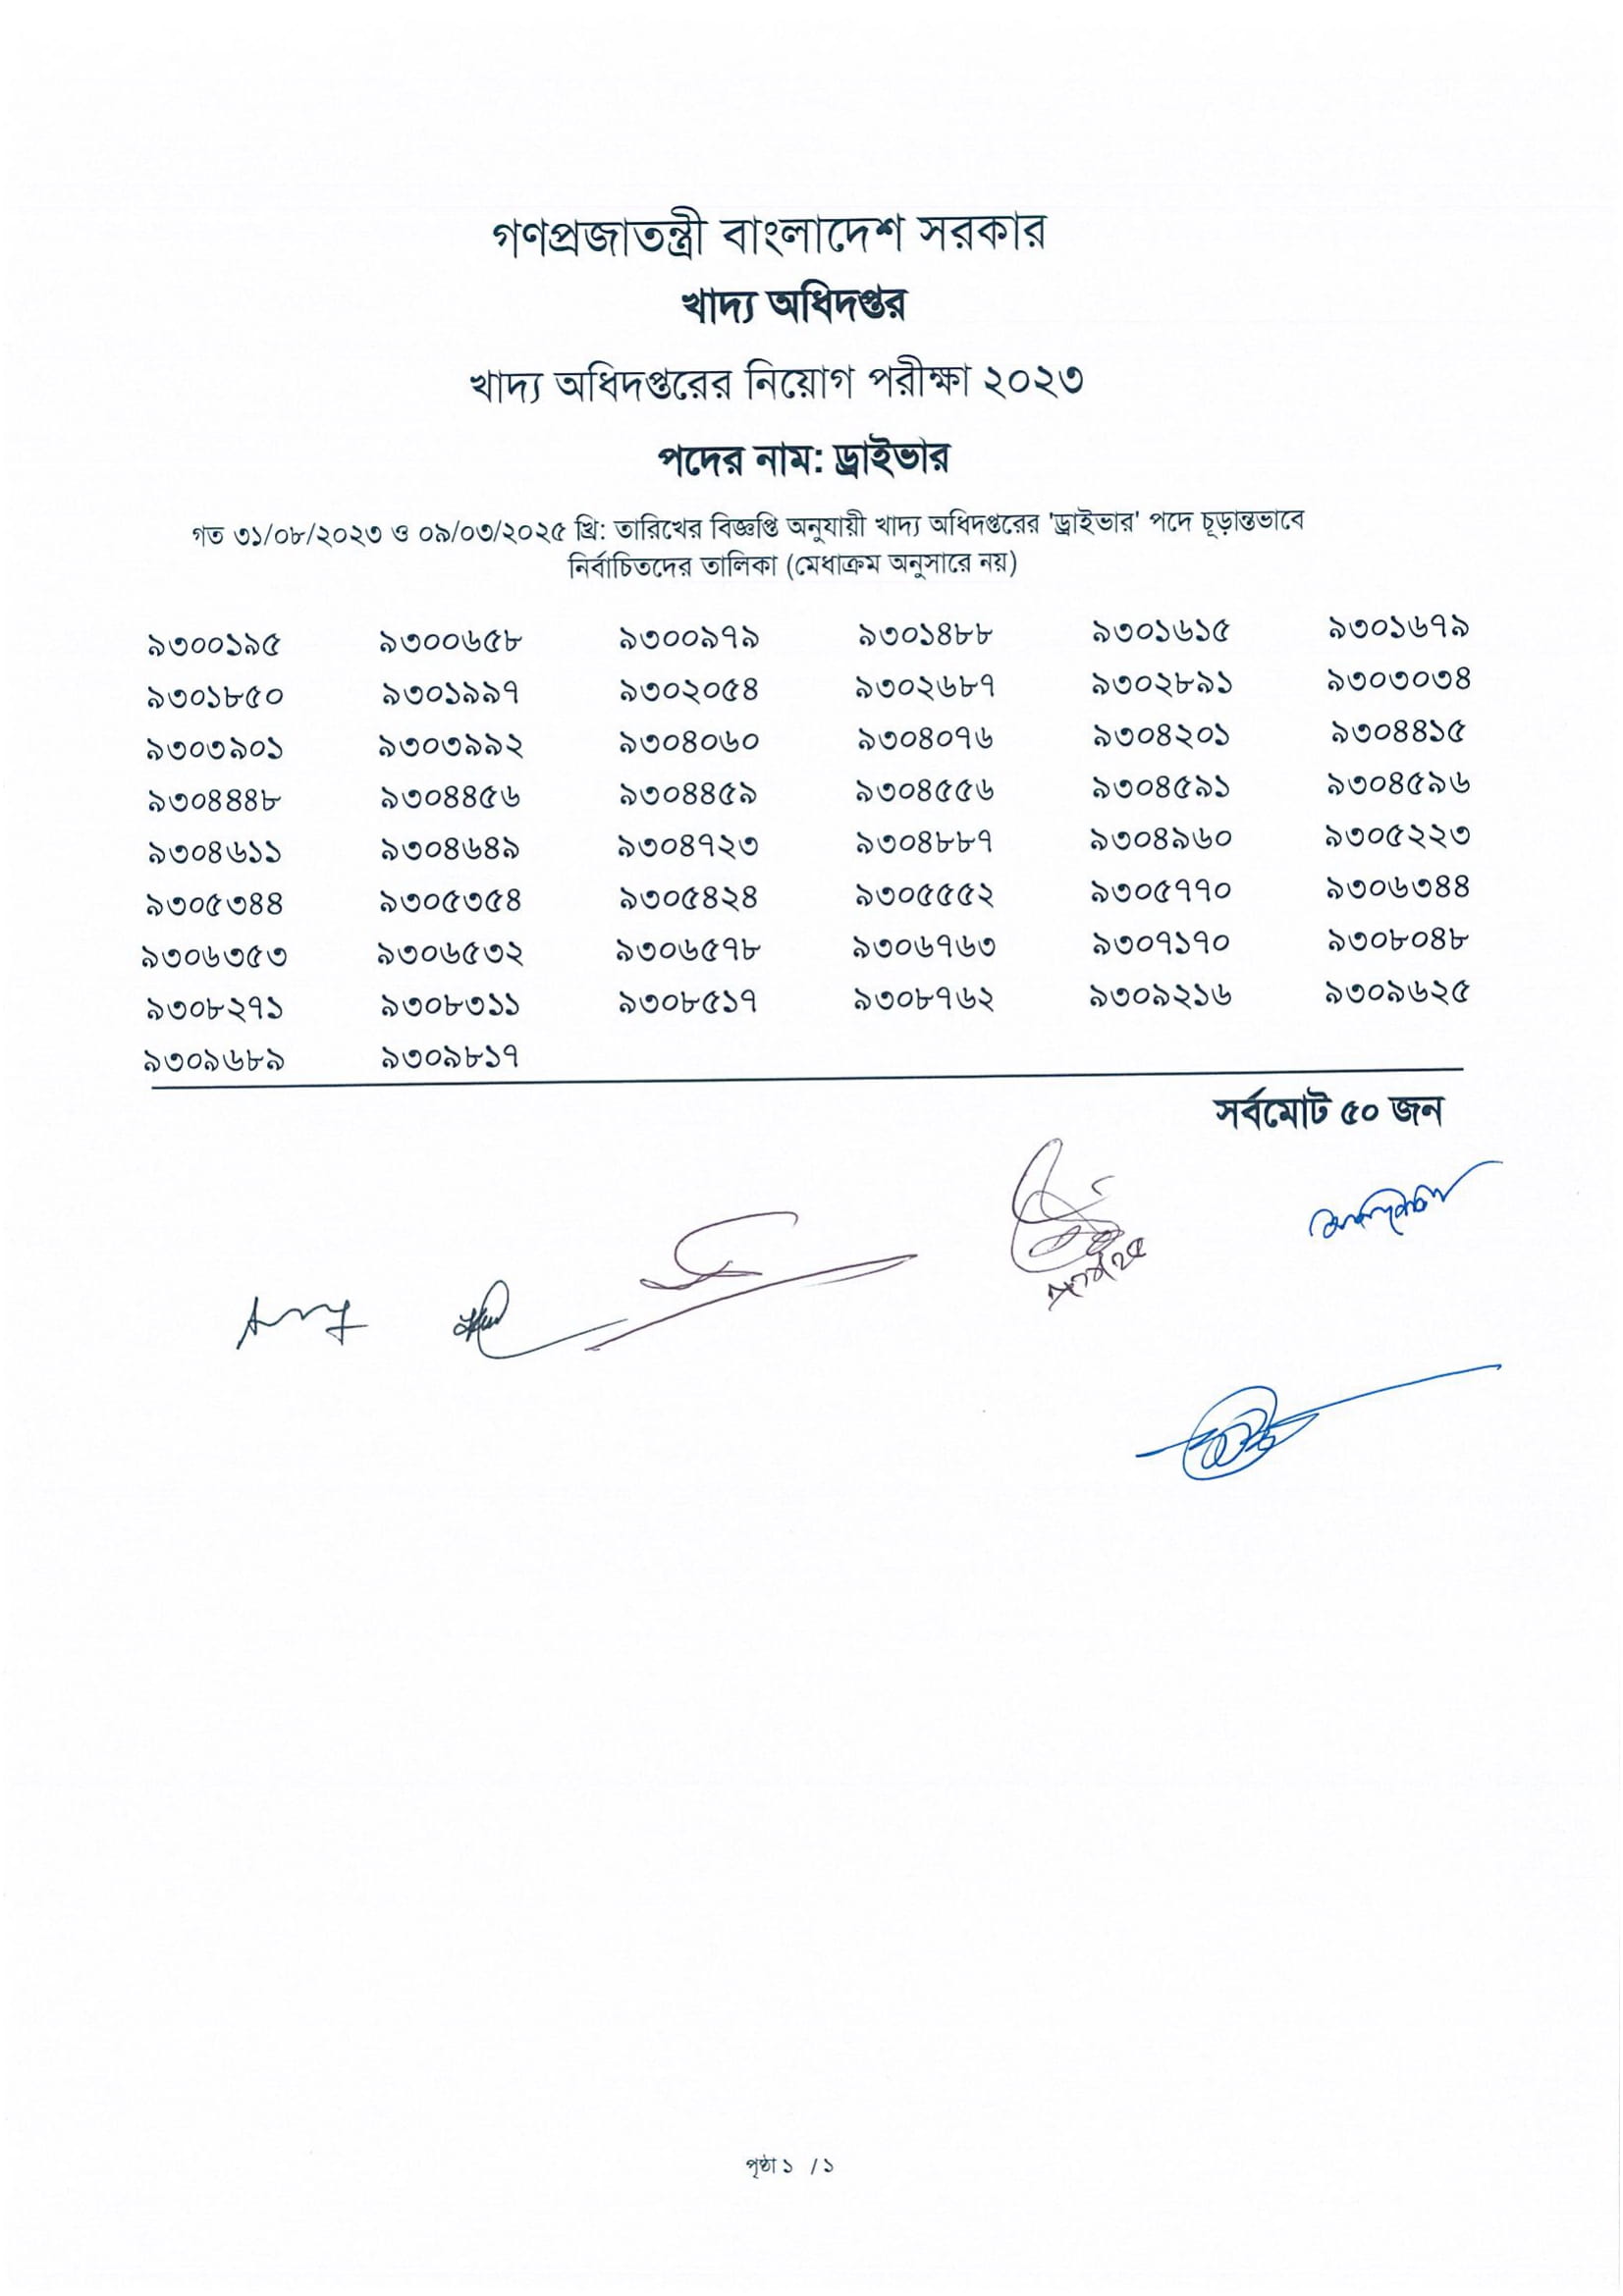 গণপ্রজাতন্ত্রী বাংলাদেশ সরকার
খাদ্য অধিদপ্তর
খাদ্য অধিদপ্তরের নিয়োগ পরীক্ষা ২০২৩
পদের নাম: ড্রাইভার
গত ৩১/০৮/২০২৩ ও ০৯/০৩/২০২৫ খ্রি: তারিখের বিজ্ঞপ্তি অনুযায়ী খাদ্য অধিদপ্তরের 'ড্রাইভার' পদে চূড়ান্তভাবে
নির্বাচিতদের তালিকা (মেধাক্রম অনুসারে নয়)
৯৩০০১৯৫ ৯৩০০৬৫৮ ৯৩০০৯৭৯ ৯৩০১৪৮৮ ৯৩০১৬১৫ ৯৩০১৬৭৯
৯৩০১৮৫০ ৯৩০১৯৯৭ ৯৩০২০৫৪ ৯৩০২৬৮৭ ৯৩০২৮৯১ ৯৩০৩০৩৪
৯৩০৩৯০১ ৯৩০৩৯৯২ ৯৩০৪০৬০ ৯৩০৪০৭৬ ৯৩০৪২০১ ৯৩০৪৪১৫
৯৩০৪৪৪৮ ৯৩০৪৪৫৬ ৯৩০৪৪৫৯ ৯৩০৪৫৫৬ ৯৩০৪৫৯১ ৯৩০৪৫৯৬
৯৩০৪৬১১ ৯৩০৪৬৪৯ ৯৩০৪৭২৩ ৯৩০৪৮৮৭ ৯৩০৪৯৬০ ৯৩০৫২২৩
৯৩০৫৩৪৪ ৯৩০৫৩৫৪ ৯৩০৫৪২৪ ৯৩০৫৫৫২ ৯৩০৫৭৭০ ৯৩০৬৩৪৪
৯৩০৬৩৫৩ ৯৩০৬৫৩২ ৯৩০৬৫৭৮ ৯৩০৬৭৬৩ ৯৩০৭১৭০ ৯৩০৮০৪৮
৯৩০৮২৭১ ৯৩০৮৩১১ ৯৩০৮৫১৭ ৯৩০৮৭৬২ ৯৩০৯২১৬ ৯৩০৯৬২৫
৯৩০৯৬৮৯ ৯৩০৯৮১৭
সর্বমোট ৫০ জন
পৃষ্ঠা ১ /১